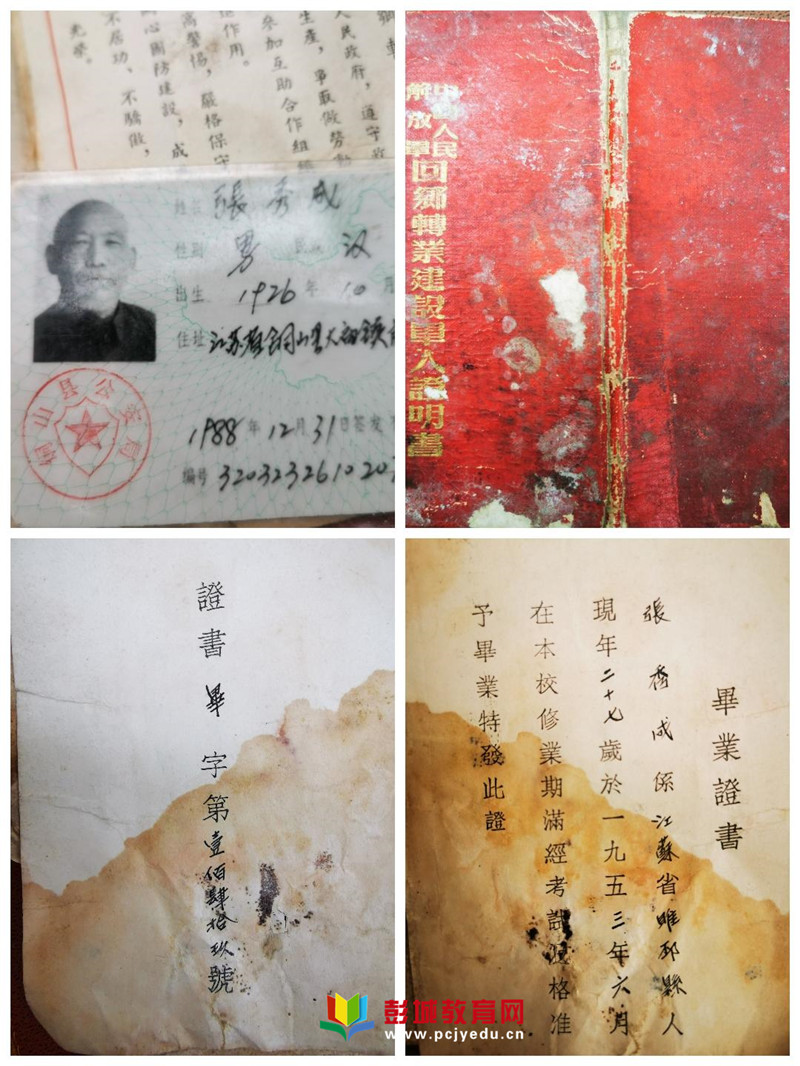 人民政府，遵守政
生產，爭取做勞
參加互助合作組
作用。
高警惕，嚴格保守
心國防建設，成
不居功，不驕傲，
光榮。
姓名 張秀成
性别 男 民族 汉
出生 1926 年 10 月
住址 江苏省銅山县大
1988 年 12 月 31 日签发
编号 32032326102
中國人民
解放軍
回鄉轉業建設軍人證明書
證書畢字第壹佰肆拾玖號
畢業證書
張秀成係江蘇省睢邳縣人
現年二十七歲於一九五三年六月
在本校修業期滿經考試及格准
予畢業特發此證
彭城教育网
www.pcjyedu.cn